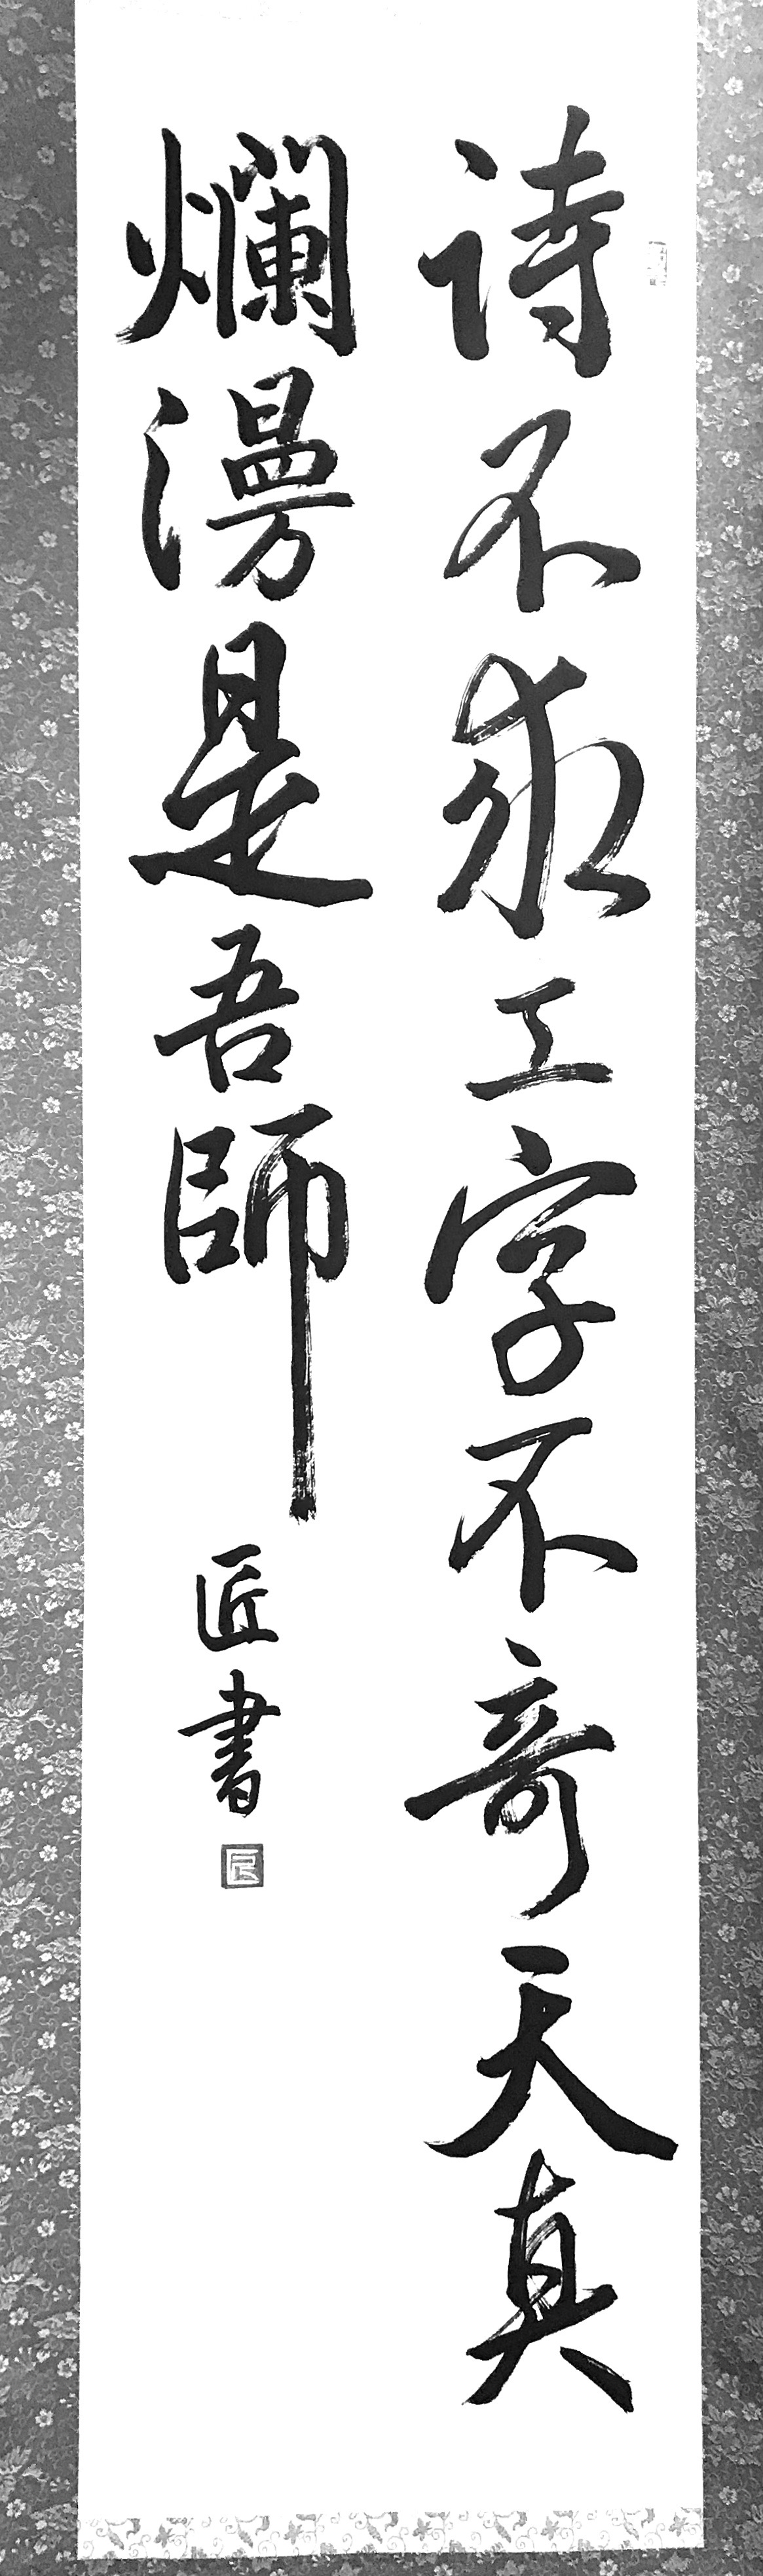 詩不求工字不奇天真
爛漫是吾師
匠書